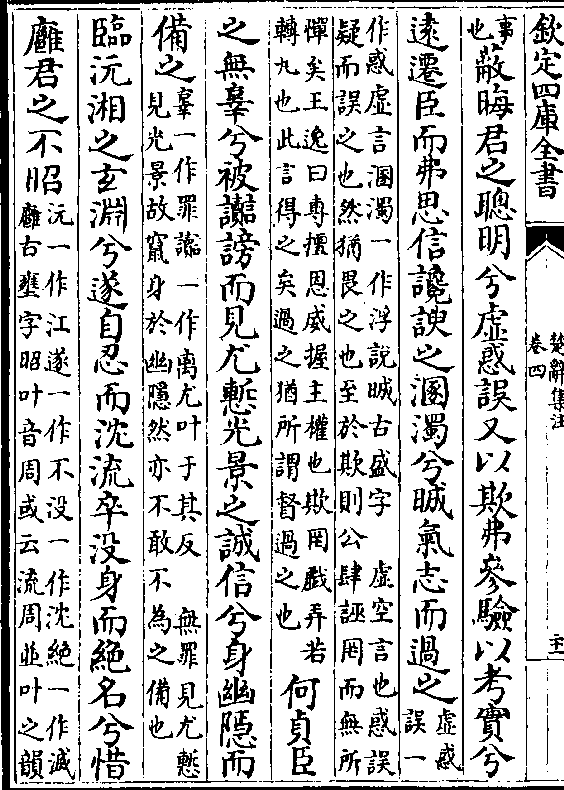 欽定四庫全書
楚辭集注
卷四
事也
蔽晦君之聰明兮虛惑誤又以欺弗參驗以考實兮
遠遷臣而弗思信讒諛之溷濁兮晠氣志而過之虛惑誤一
作惑虛言溷濁一作浮說晠古盛字　虛空言也惑誤
疑而誤之也然猶畏之也至於欺則公肆誣罔而無所
憚矣王逸曰專擅恩威握主權也欺罔戲弄若
轉丸也此言得之矣過之猶所謂督過之也
何貞臣
之無辠兮被讟謗而見尤慙光景之誠信兮身幽隱而
備之
辠一作罪讟一作离尤叶于其反　無罪見尤慙
見光景故竄身於幽隱然亦不敢不為之備也
臨沅湘之玄淵兮遂自忍而沈流卒没身而絕名兮惜
廱君之不昭
沅一作江遂一作不没一作沈絕一作滅
廱古壅字昭叶音周或云流周並叶之韻